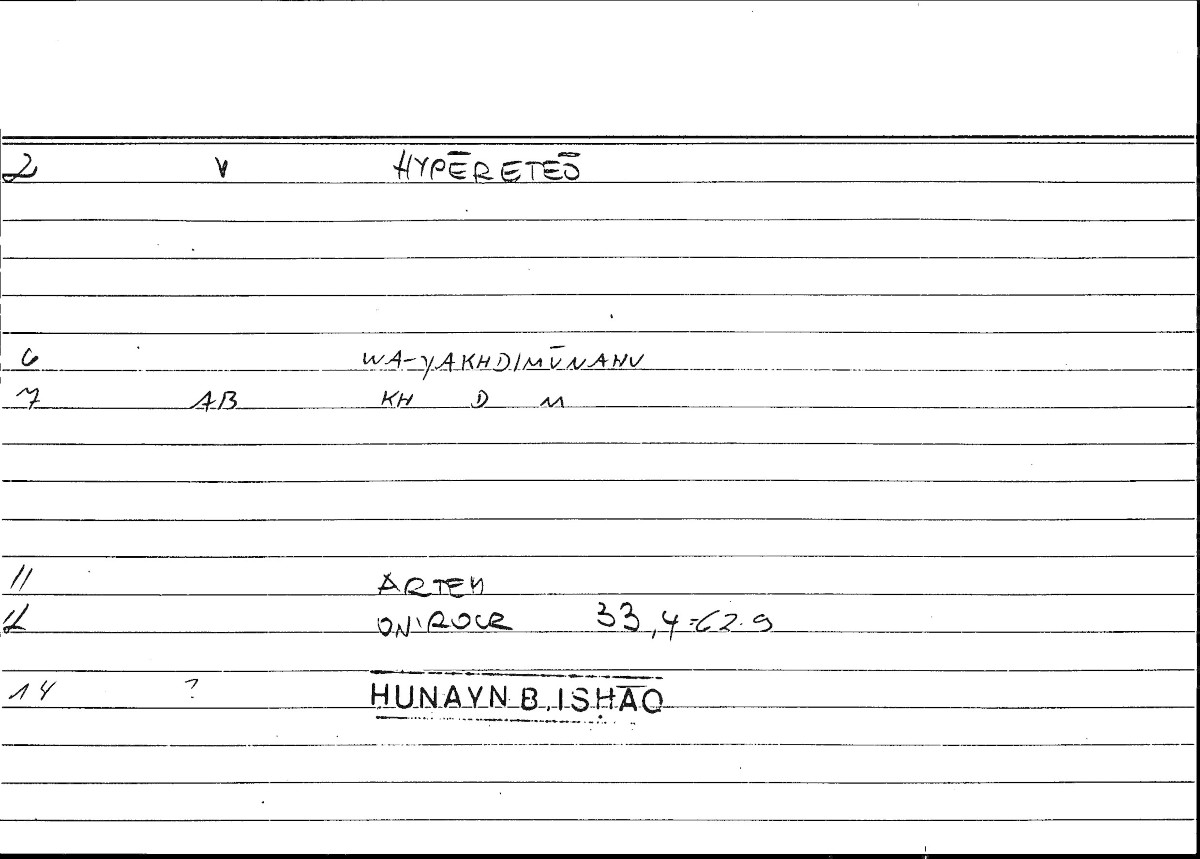 2 V HYPĒRETEŌ
6 WA-YAKHDIMŪNAHU
7 AB KH D M
11 ARTEM
12 ONIROCR 33,4=62.9
14 ? HUNAYN B. ISḤĀQ